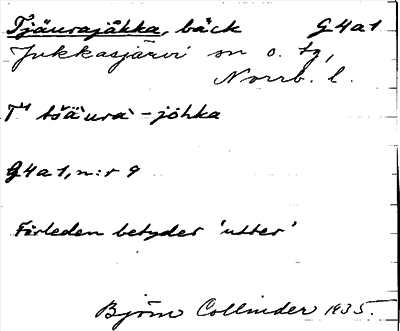 Tjäurajåkka, bäck G4a1
Jukkasjärvi sn o. tg,
Norrb. l.
T¹ tšäˋuraˋ-jöhka
G4a1, n:r 9
Förleden betyder 'utter'
Björn Collinder 1935.